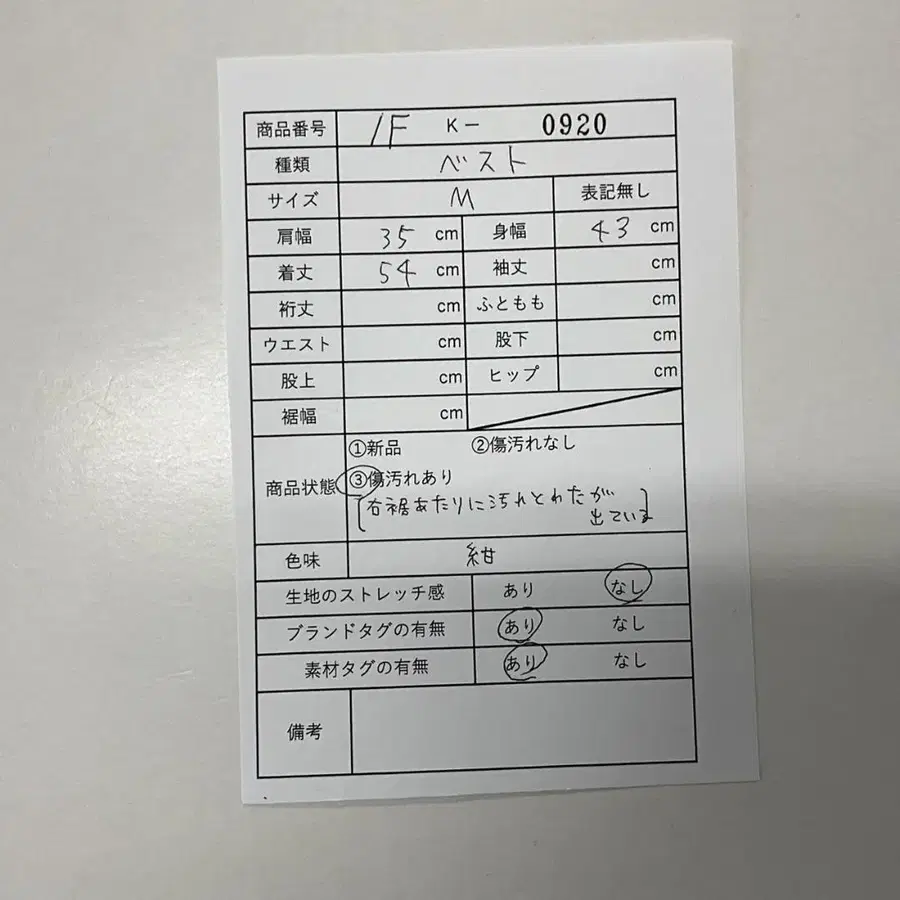 商品番号 1F K- 0920
種類 ベスト
サイズ M 表記無し
肩幅 35 cm 身幅 43 cm
着丈 54 cm 袖丈 cm
裄丈 cm ふともも cm
ウエスト cm 股下 cm
股上 cm ヒップ cm
裾幅 cm
①新品 ②傷汚れなし
商品状態 ③傷汚れあり
[右裾あたりに汚れとわたが
出ている]
色味 紺
生地のストレッチ感 あり なし
ブランドタグの有無 あり なし
素材タグの有無 あり なし
備考